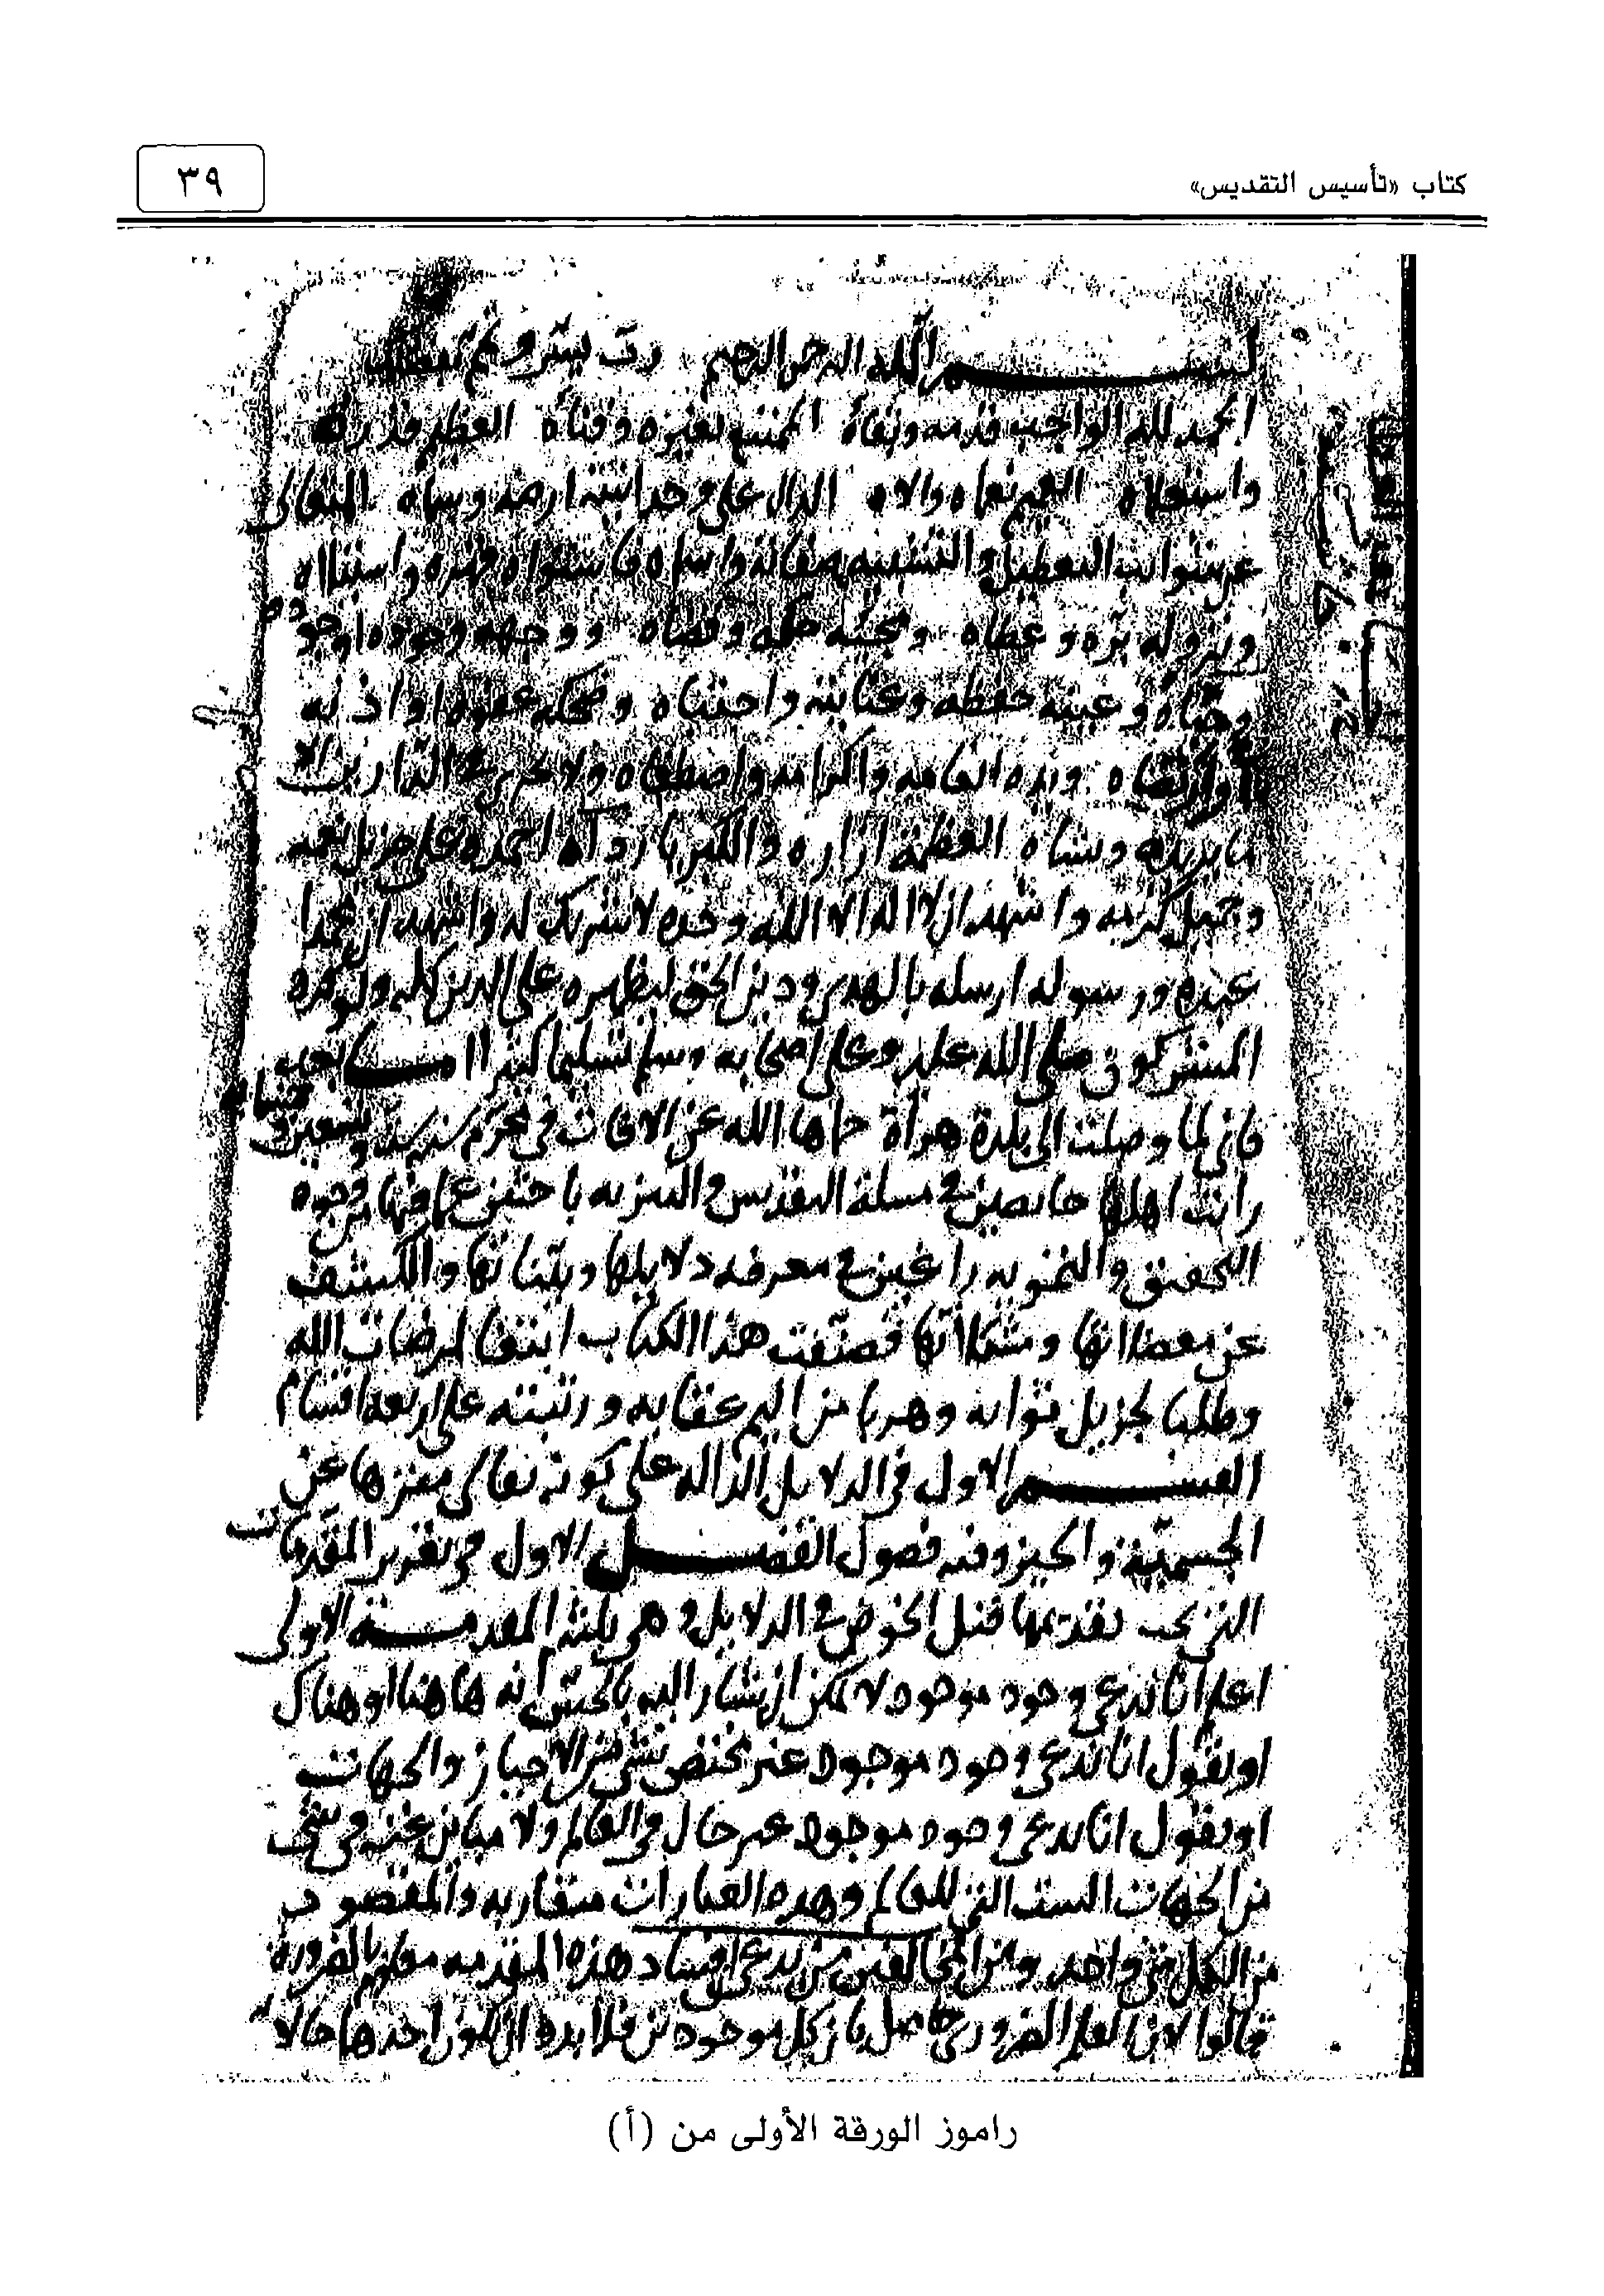 كتاب «تأسيس التقديس»
٣٩
بسم الله الرحمن الرحيم رب يسر وتمم بفضلك
الحمد لله الواجب قدمه وبقاه الممتنع تغيره وفناه العظيم قدره
واستعلاه العميم نعماه والاه الدال على وحدانيته ارضه وسماه المتعالى
عن شوائب التعطيل والتشبيه صفاته واسماه فاستواه قهره واستيلاه
ونزوله بره وعطاه ومجيئه حكمه وقضاه ووجهه وجوده او جوده
وحباه وعينه حفظه وعنايته واجتباه وضحكه عفوه او اذنه
وارتضاه ويده انعامه واكرامه واصطفاه ولا يجري في الدارين الا
ما يريده ويشاه العظمة ازاره والكبريا رداه احمده على جزيل نعمه
وجميل كرمه واشهد ان لا اله الا الله وحده لا شريك له واشهد ان محمدا
عبده ورسوله ارسله بالهدى ودين الحق ليظهره على الدين كله ولو كره
المشركون صلى الله عليه وعلى اصحابه وسلم تسليما كثيرا اما بعد
فاني لما وصلت الى بلدة هراة حماها الله عن الافات في محرم سنه ست وتسعين و خمسمايه
رايت اهلها خايضين في مسلة التقديس والتنزيه باحثين عما فيها من وجوه
التحقيق والتمويه راغبين في معرفه دلايلها وبيناتها والكشف
عن معضلاتها ومشكلاتها فصنفت هذا الكتاب ابتغا لمرضات الله
وطلبا لجزيل ثوابه وهربا من اليم عقابه ورتبته على اربعه اقسام
القسم الاول في الدلايل الداله على كونه تعالى منزها عن
الجسمية والحيز وفيه فصول الفصل الاول في تقرير المقدمات
التي يجب تقديمها قبل الخوض في الدلايل وهي ثلثة المقدمة الاولى
اعلم انا ندعي وجود موجود لا يمكن ان يشار اليه بالحس انه هاهنا او هناك
او نقول انا ندعي وجود موجود غير مختص بشي من الاحياز والجهات
او نقول انا ندعي وجود موجود غير حال في العالم ولا مباين عنه في شي
من الجهات الست التي للعالم وهذه العبارات متقاربه والمقصود
من الكل شي واحد ومن المخالفين من يدعي ان فساد هذه المقدمه معلوم بالضرورة
قالوا لان العلم الضروري حاصل بان كل موجودين فلا بد ان يكون احدهما حالا
راموز الورقة الأولى من (أ)